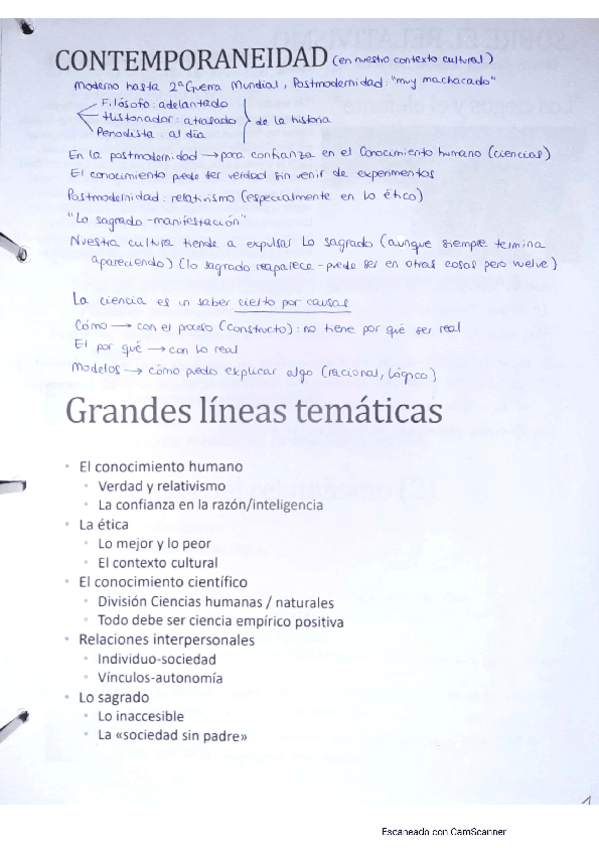 CONTEMPORANEIDAD (en nuestro contexto cultural)
Moderno hasta 2ª Guerra Mundial, Postmodernidad: "muy machacado"
Filósofo: adelantado
Historiador: atrasado
de la historia
Periodista: al día
En la postmodernidad → poca confianza en el conocimiento humano (ciencias)
El conocimiento puede ser verdad sin venir de experimentos
Postmodernidad: relativismo (especialmente en lo ético)
"Lo sagrado - manifestación"
Nuestra cultura tiende a expulsar lo sagrado (aunque siempre termina
apareciendo) (lo sagrado reaparece - puede ser en otras cosas pero vuelve)
La ciencia es un saber cierto por causas
Cómo → con el proceso (constructo): no tiene por qué ser real
El por qué → con lo real
Modelos → cómo puedo explicar algo (racional, lógico)
Grandes líneas temáticas
• El conocimiento humano
• Verdad y relativismo
• La confianza en la razón/inteligencia
• La ética
• Lo mejor y lo peor
• El contexto cultural
• El conocimiento científico
• División Ciencias humanas / naturales
• Todo debe ser ciencia empírico positiva
• Relaciones interpersonales
• Individuo-sociedad
• Vínculos-autonomía
• Lo sagrado
• Lo inaccesible
• La «sociedad sin padre»
1
Escaneado con CamScanner